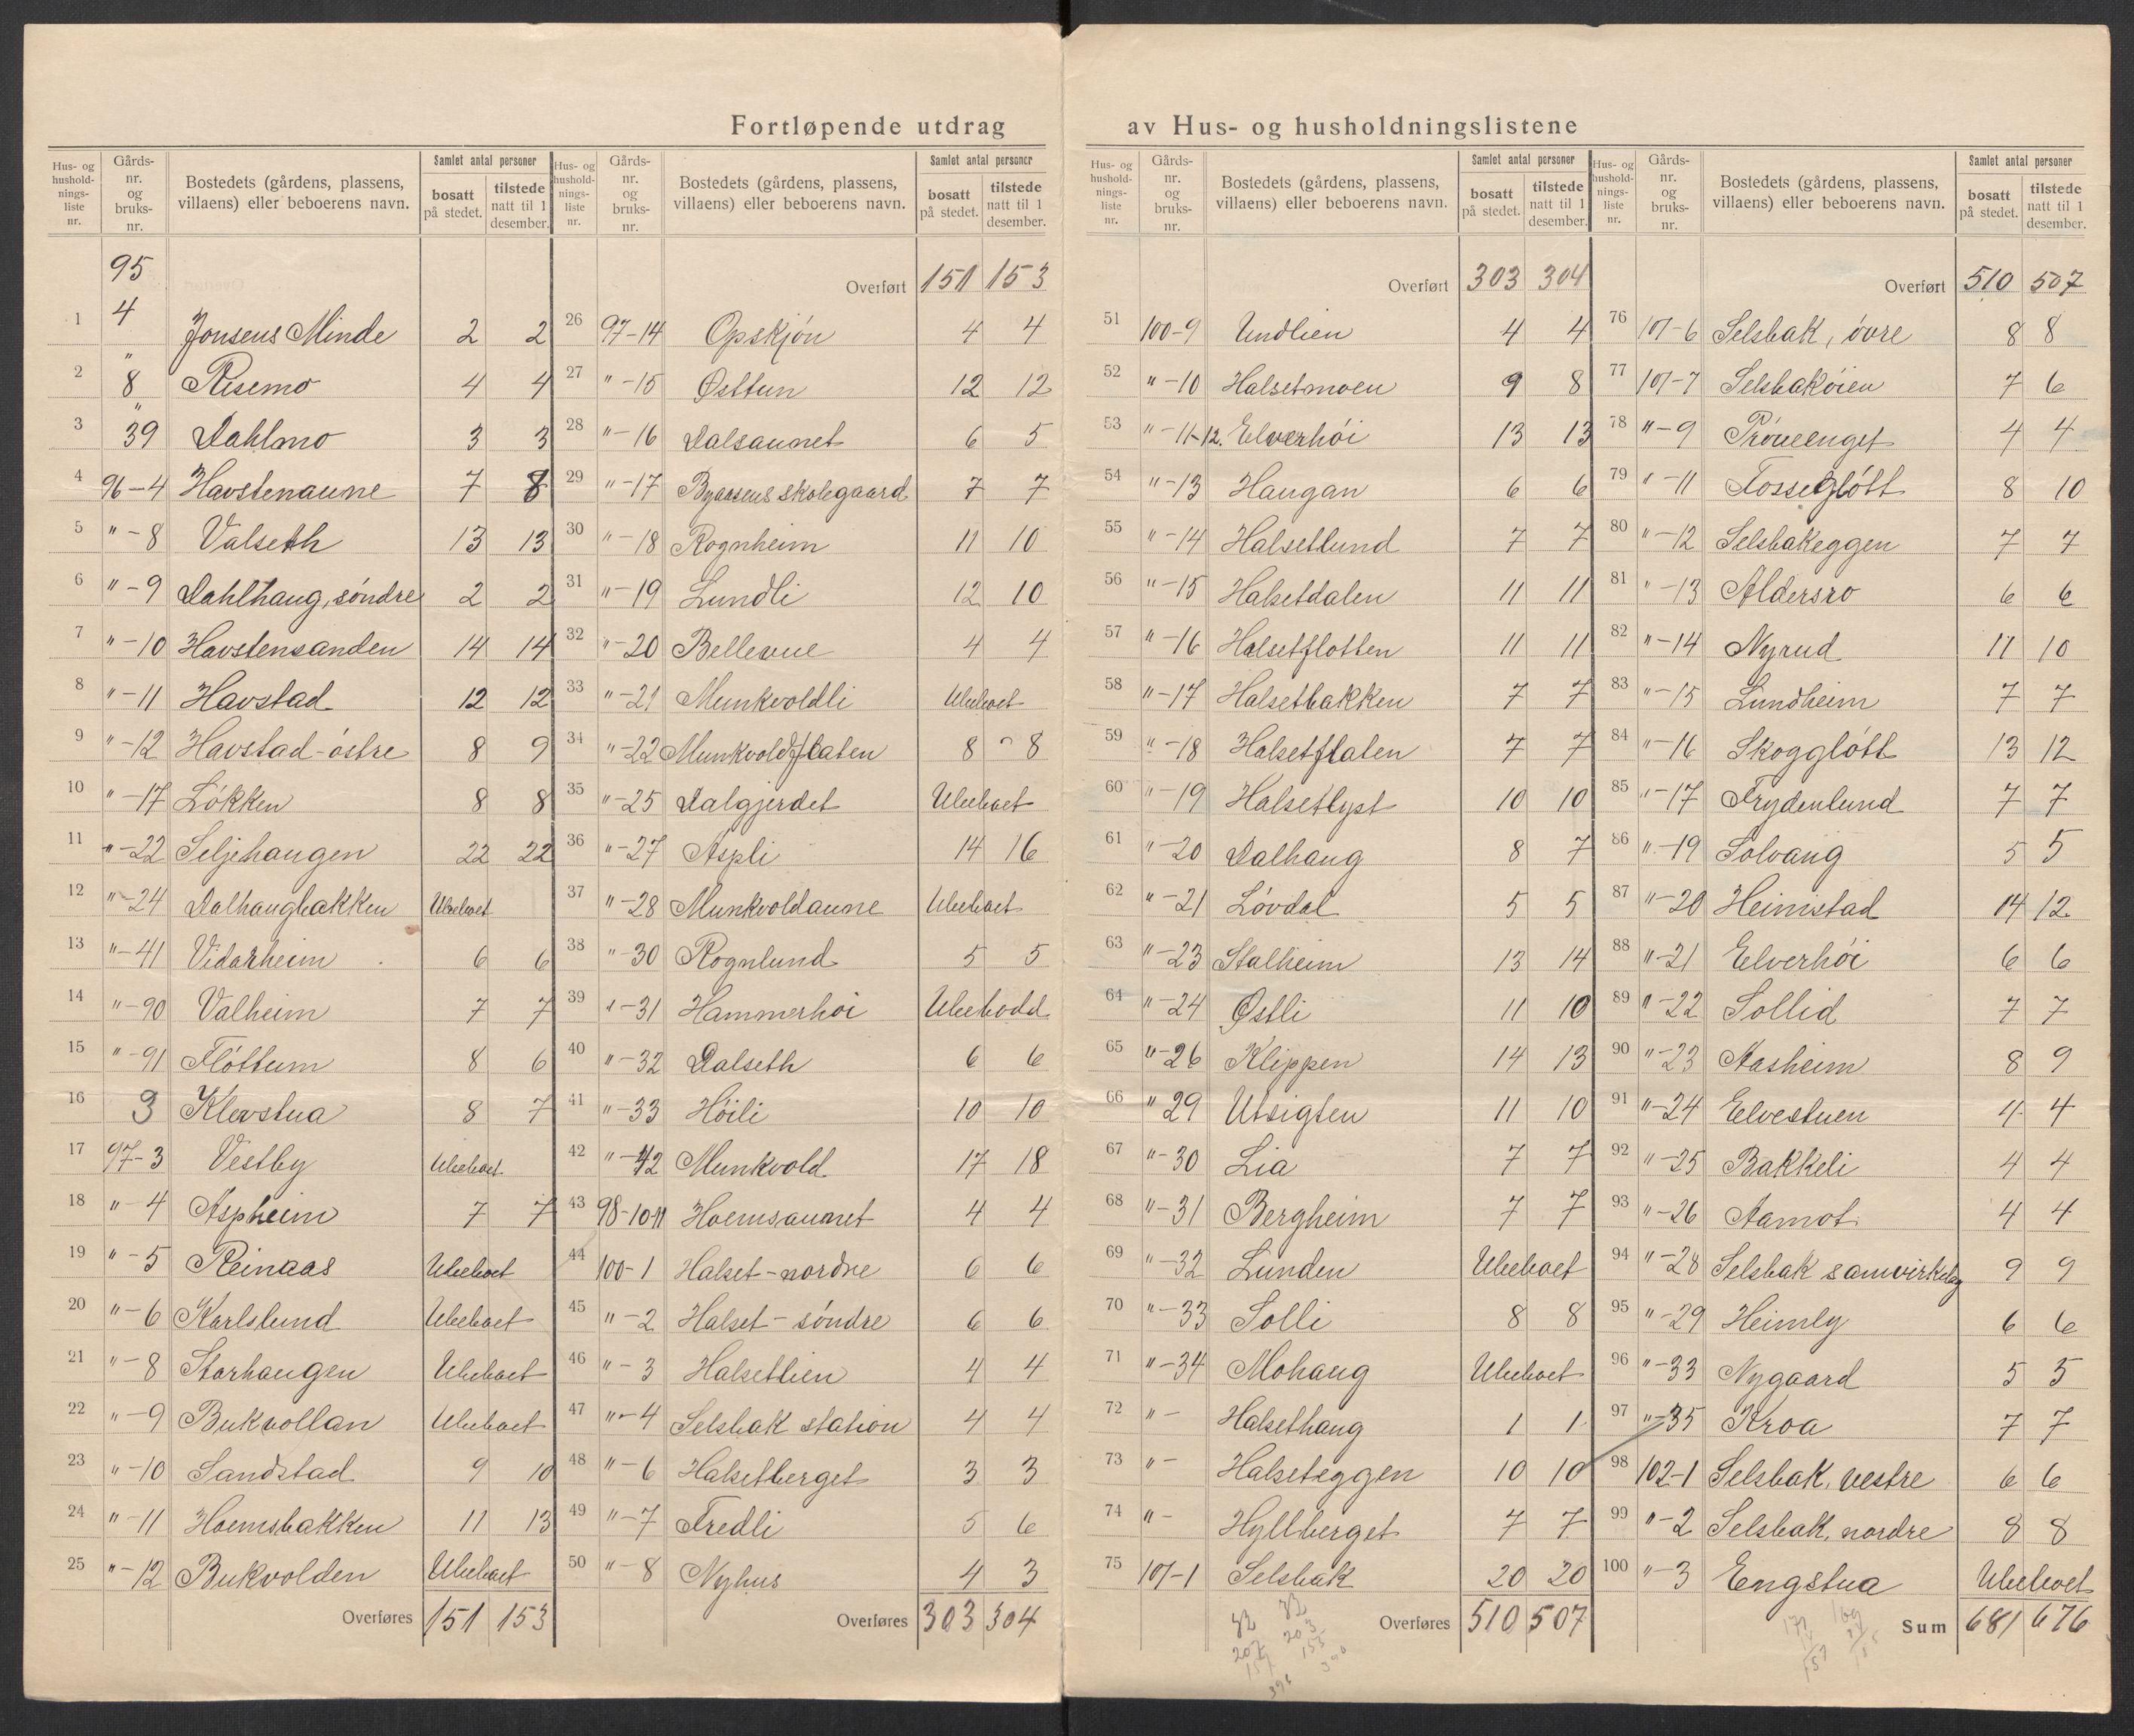 Fortløpende utdrag av Hus- og husholdningslistene
Hus- og husholdnings-liste nr. | Gårds-nr. og bruks-nr. | Bostedets (gårdens, plassens, villaens) eller beboerens navn. | Samlet antal personer bosatt på stedet. | tilstede natt til 1 desember.
95
1 4 Jonsens Minde 2 2
2 " 8 Risemo 4 4
3 " 39 Dahlmo 3 3
4 96-4 Havstenaune 7 8
5 "-8 Valseth 13 13
6 "-9 Dahlhaug, søndre 2 2
7 "-10 Havstensanden 14 14
8 "-11 Havstad 12 12
9 "-12 Havstad-østre 8 9
10 "-17 Løkken 8 8
11 "-22 Seljehaugen 22 22
12 "-24 Dalhaugbakken Ubeboet
13 "-41 Vidarheim 6 6
14 "-90 Valheim 7 7
15 "-91 Fløttum 8 6
16 3 Klevstua 8 7
17 97-3 Vestby Ubeboet
18 "-4 Aspheim 7 7
19 "-5 Reinaas Ubeboet
20 "-6 Karlslund Ubeboet
21 "-8 Storhaugen Ubeboet
22 "-9 Bukvollan Ubeboet
23 "-10 Sandstad 9 10
24 "-11 Hoemsbakken 11 13
25 "-12 Bukvolden Ubeboet
Overføres 151 153
Hus- og husholdnings-liste nr. | Gårds-nr. og bruks-nr. | Bostedets (gårdens, plassens, villaens) eller beboerens navn. | Samlet antal personer bosatt på stedet. | tilstede natt til 1 desember.
Overført 151 153
26 97-14 Opskjøn 4 4
27 "-15 Østtun 12 12
28 "-16 Dalsaunet 6 5
29 "-17 Byaasens skolegaard 7 7
30 "-18 Rognheim 11 10
31 "-19 Lundli 12 10
32 "-20 Bellevue 4 4
33 "-21 Munkvoldli Ubeboet
34 "-22 Munkvoldflaten 8 8
35 "-25 Dalgjerdet Ubeboet
36 "-27 Aspli 14 16
37 "-28 Munkvoldaune Ubeboet
38 "-30 Rognlund 5 5
39 "-31 Hammerhøi Ubebodd
40 "-32 Dalseth 6 6
41 "-33 Høili 10 10
42 "-42 Munkvold 17 18
43 98-10-11 Hoemsaunet 4 4
44 100-1 Halset-nordre 6 6
45 "-2 Halset-søndre 6 6
46 "-3 Halsetlien 4 4
47 "-4 Selsbak station 4 4
48 "-6 Halsetberget 3 3
49 "-7 Fredli 5 6
50 "-8 Nyhus 4 3
Overføres 303 304
Hus- og husholdnings-liste nr. | Gårds-nr. og bruks-nr. | Bostedets (gårdens, plassens, villaens) eller beboerens navn. | Samlet antal personer bosatt på stedet. | tilstede natt til 1 desember.
Overført 303 304
51 100-9 Undlien 4 4
52 "-10 Halsetmoen 9 8
53 "-11-12. Elverhøi 13 13
54 "-13 Haugan 6 6
55 "-14 Halsetlund 7 7
56 "-15 Halsetdalen 11 11
57 "-16 Halsetflotten 11 11
58 "-17 Halsetbakken 7 7
59 "-18 Halsetflaten 7 7
60 "-19 Halsetlyst 10 10
61 "-20 Dalhaug 8 7
62 "-21 Løvdal 5 5
63 "-23 Stalheim 13 14
64 "-24 Østli 11 10
65 "-26 Klippen 14 13
66 " 29 Utsigten 11 10
67 "-30 Lia 7 7
68 "-31 Bergheim 7 7
69 "-32 Lunden Ubeboet
70 "-33 Solli 8 8
71 "-34 Mohaug Ubeboet
72 "- Halsethaug 1 1
73 "- Halseteggen 10 10
74 "- Hyllberget 7 7
75 101-1 Selsbak 20 20
Overføres 510 507
Hus- og husholdnings-liste nr. | Gårds-nr. og bruks-nr. | Bostedets (gårdens, plassens, villaens) eller beboerens navn. | Samlet antal personer bosatt på stedet. | tilstede natt til 1 desember.
Overført 510 507
76 101-6 Selsbak, øvre 8 8
77 101-7 Selsbakøien 7 6
78 "-9 Prøveenget 4 4
79 "-11 Fossegløtt 8 10
80 "-12 Selsbakeggen 7 7
81 "-13 Aldersro 6 6
82 "-14 Nyrud 11 10
83 "-15 Lundheim 7 7
84 "-16 Skoggløtt 13 12
85 "-17 Frydenlund 7 7
86 "-19 Solvang 5 5
87 "-20 Heimstad 14 12
88 "-21 Elverhøi 6 6
89 "-22 Sollid 7 7
90 "-23 Aasheim 8 9
91 "-24 Elvestuen 4 4
92 "-25 Bakkeli 4 4
93 "-26 Aamot 4 4
94 "-28 Selsbak samvirkelag 9 9
95 "-29 Heimly 6 6
96 "-33 Nygaard 5 5
97 "-35 Kroa 7 7
98 102-1 Selsbak, vestre 6 6
99 "-2 Selsbak, nordre 8 8
100 "-3 Engstua Ubeboet
Sum 681 676